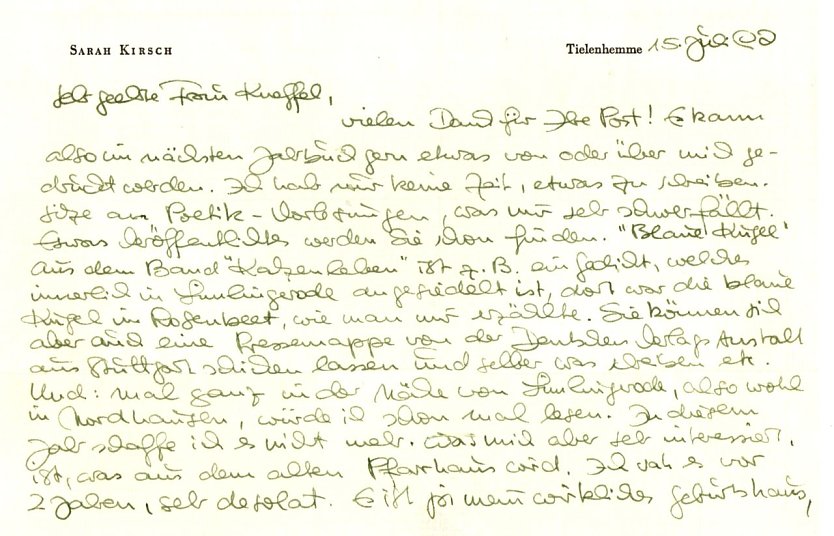 SARAH KIRSCH
Tielenhemme 15. Juli
Sehr geehrte Frau Kneffel,
vielen Dank für Ihre Post! Es kann
also im nächsten Jahrbuch gern etwas von oder über mich ge-
druckt werden. Ich hab nur keine Zeit, etwas zu schreiben.
Sitze an Poetik-Vorlesungen, was mir sehr schwerfällt.
Etwas Veröffentlichtes werden Sie schon finden. "Blaue Kugel"
aus dem Band "Katzenleben" ist z.B. ein Gedicht, welches
innerlich in Limlingerode angesiedelt ist, dort war die blaue
Kugel im Rosenbeet, wie man mir erzählte. Sie können sich
aber auch eine Pressemappe von der Deutschen Verlags Anstalt
aus Stuttgart schicken lassen und selber was schreiben etc.
Und: mal ganz in der Nähe von Limlingerode, also wohl
in Nordhausen, würde ich schon mal lesen. In diesem
Jahr schaffe ich es nicht mehr. Was mich aber sehr interessiert,
ist, was aus dem alten Pfarrhaus wird. Ich sah es vor
2 Jahren, sehr desolat. Es ist ja mein wirkliches Geburtshaus,